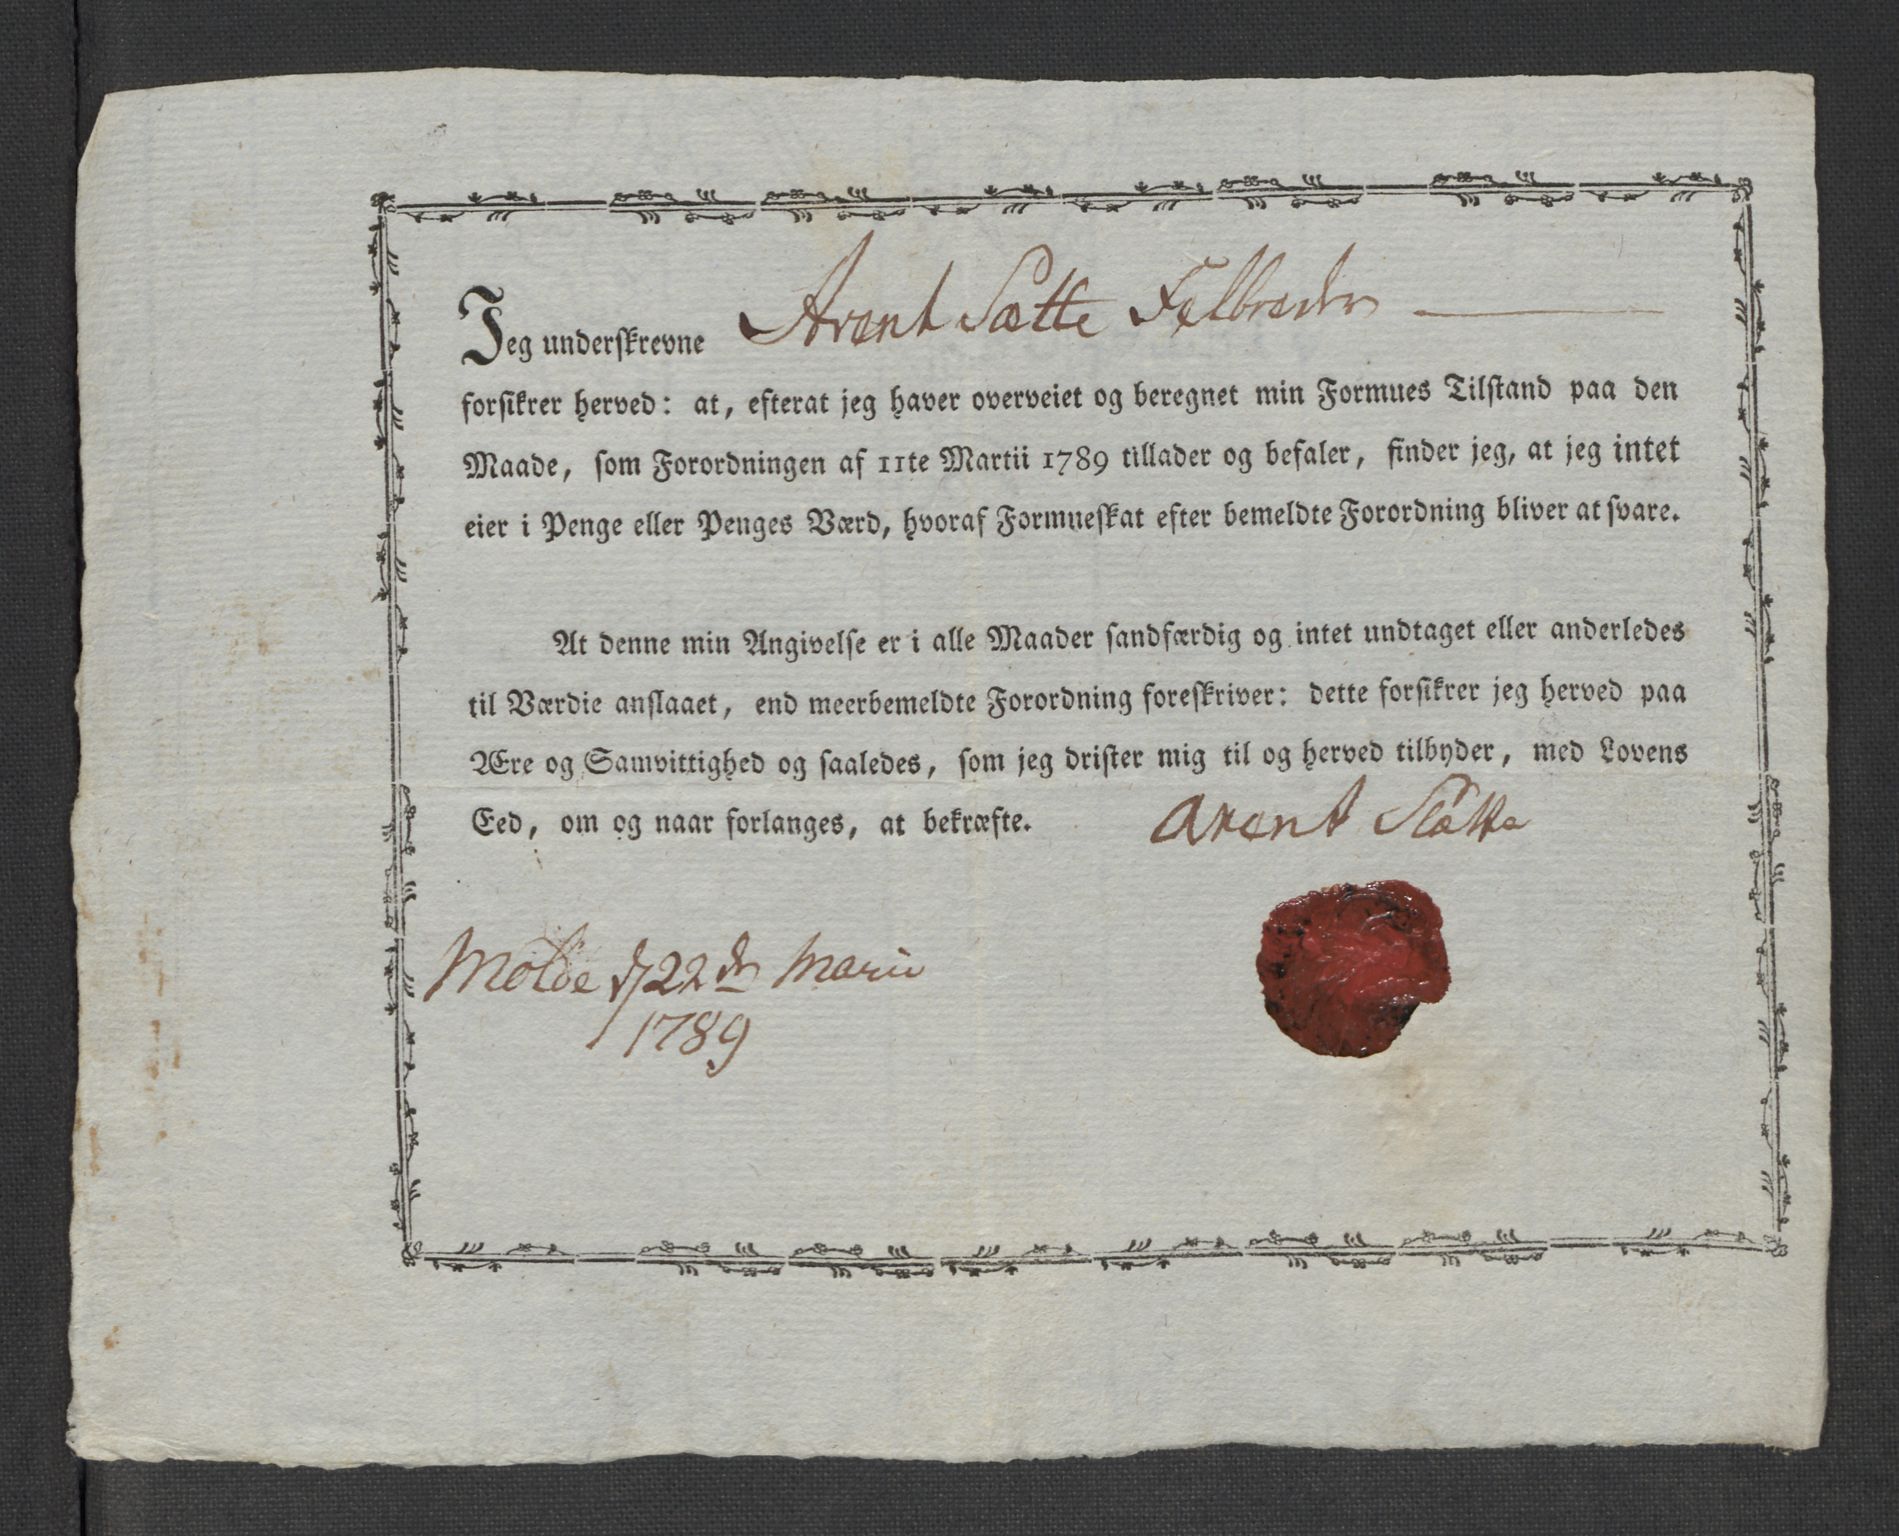 Jeg underskrevne Arent Sætte Felbreder
forsikrer herved: at, efterat jeg haver overveiet og beregnet min Formues Tilstand paa den
Maade, som Forordningen af 11te Martii 1789 tillader og befaler, finder jeg, at jeg intet
eier i Penge eller Penges Værd, hvoraf Formueskat efter bemeldte Forordning bliver at svare.
At denne min Angivelse er i alle Maader sandfærdig og intet undtaget eller anderledes
til Værdie anslaaet, end meerbemeldte Forordning foreskriver: dette forsikrer jeg herved paa
Ære og Samvittighed og saaledes, som jeg drister mig til og herved tilbyder, med Lovens
Eed, om og naar forlanges, at bekræfte.
Arent
Molde d 22de
1789